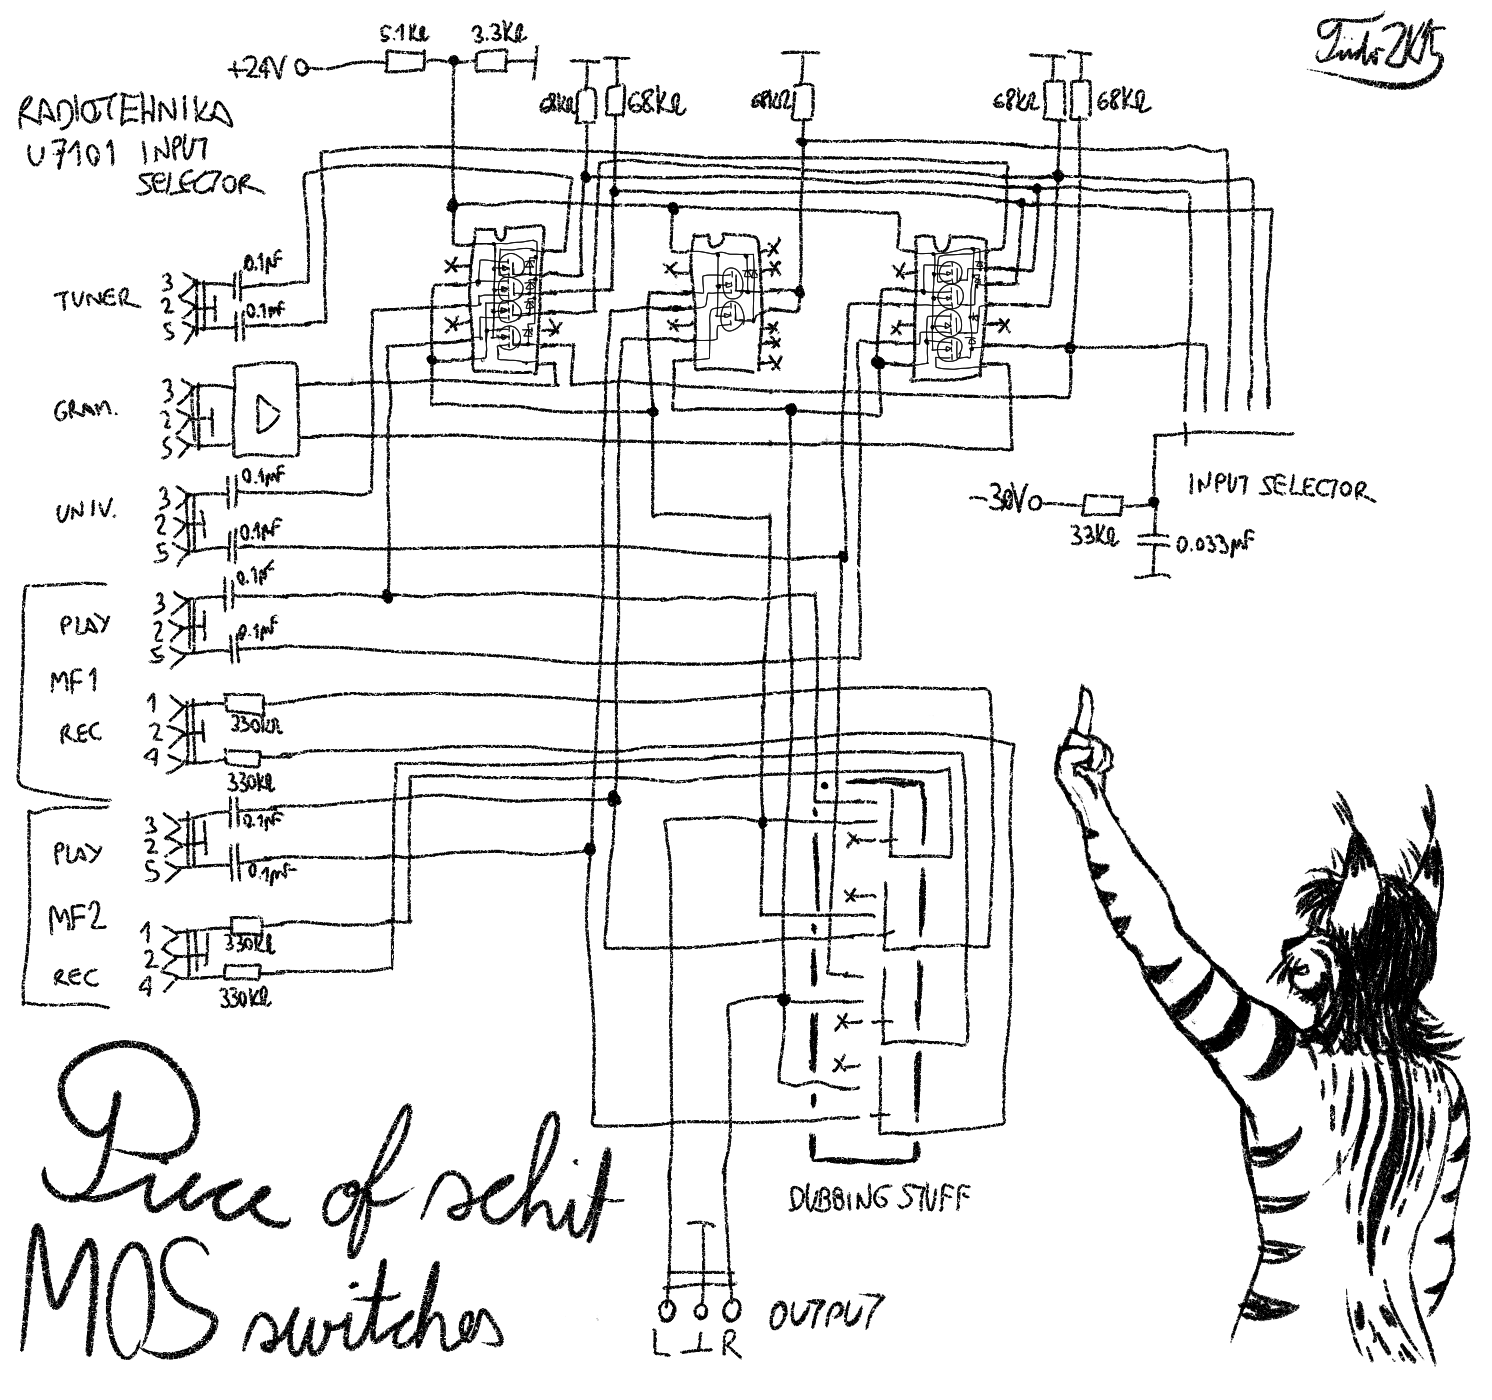 5.1KΩ 3.3KΩ
+24V
Tudi 2K15
68KΩ 68KΩ 68KΩ 68KΩ 68KΩ
RADIOTEHNIKA
U7101 INPUT
SELECTOR
0.1µF
TUNER 3
2
5
0.1µF
GRAM. 3
2
5
0.1µF
UNIV. 3
2
5
0.1µF
-30V
33KΩ
0.033µF
INPUT SELECTOR
0.1µF
PLAY 3
2
5
0.1µF
MF1
REC 1
2
4
330KΩ
330KΩ
PLAY 3
2
5
0.1µF
0.1µF
MF2
REC 1
2
4
330KΩ
330KΩ
DUBBING STUFF
Piece of schit
MOS switches
OUTPUT
L ⊥ R